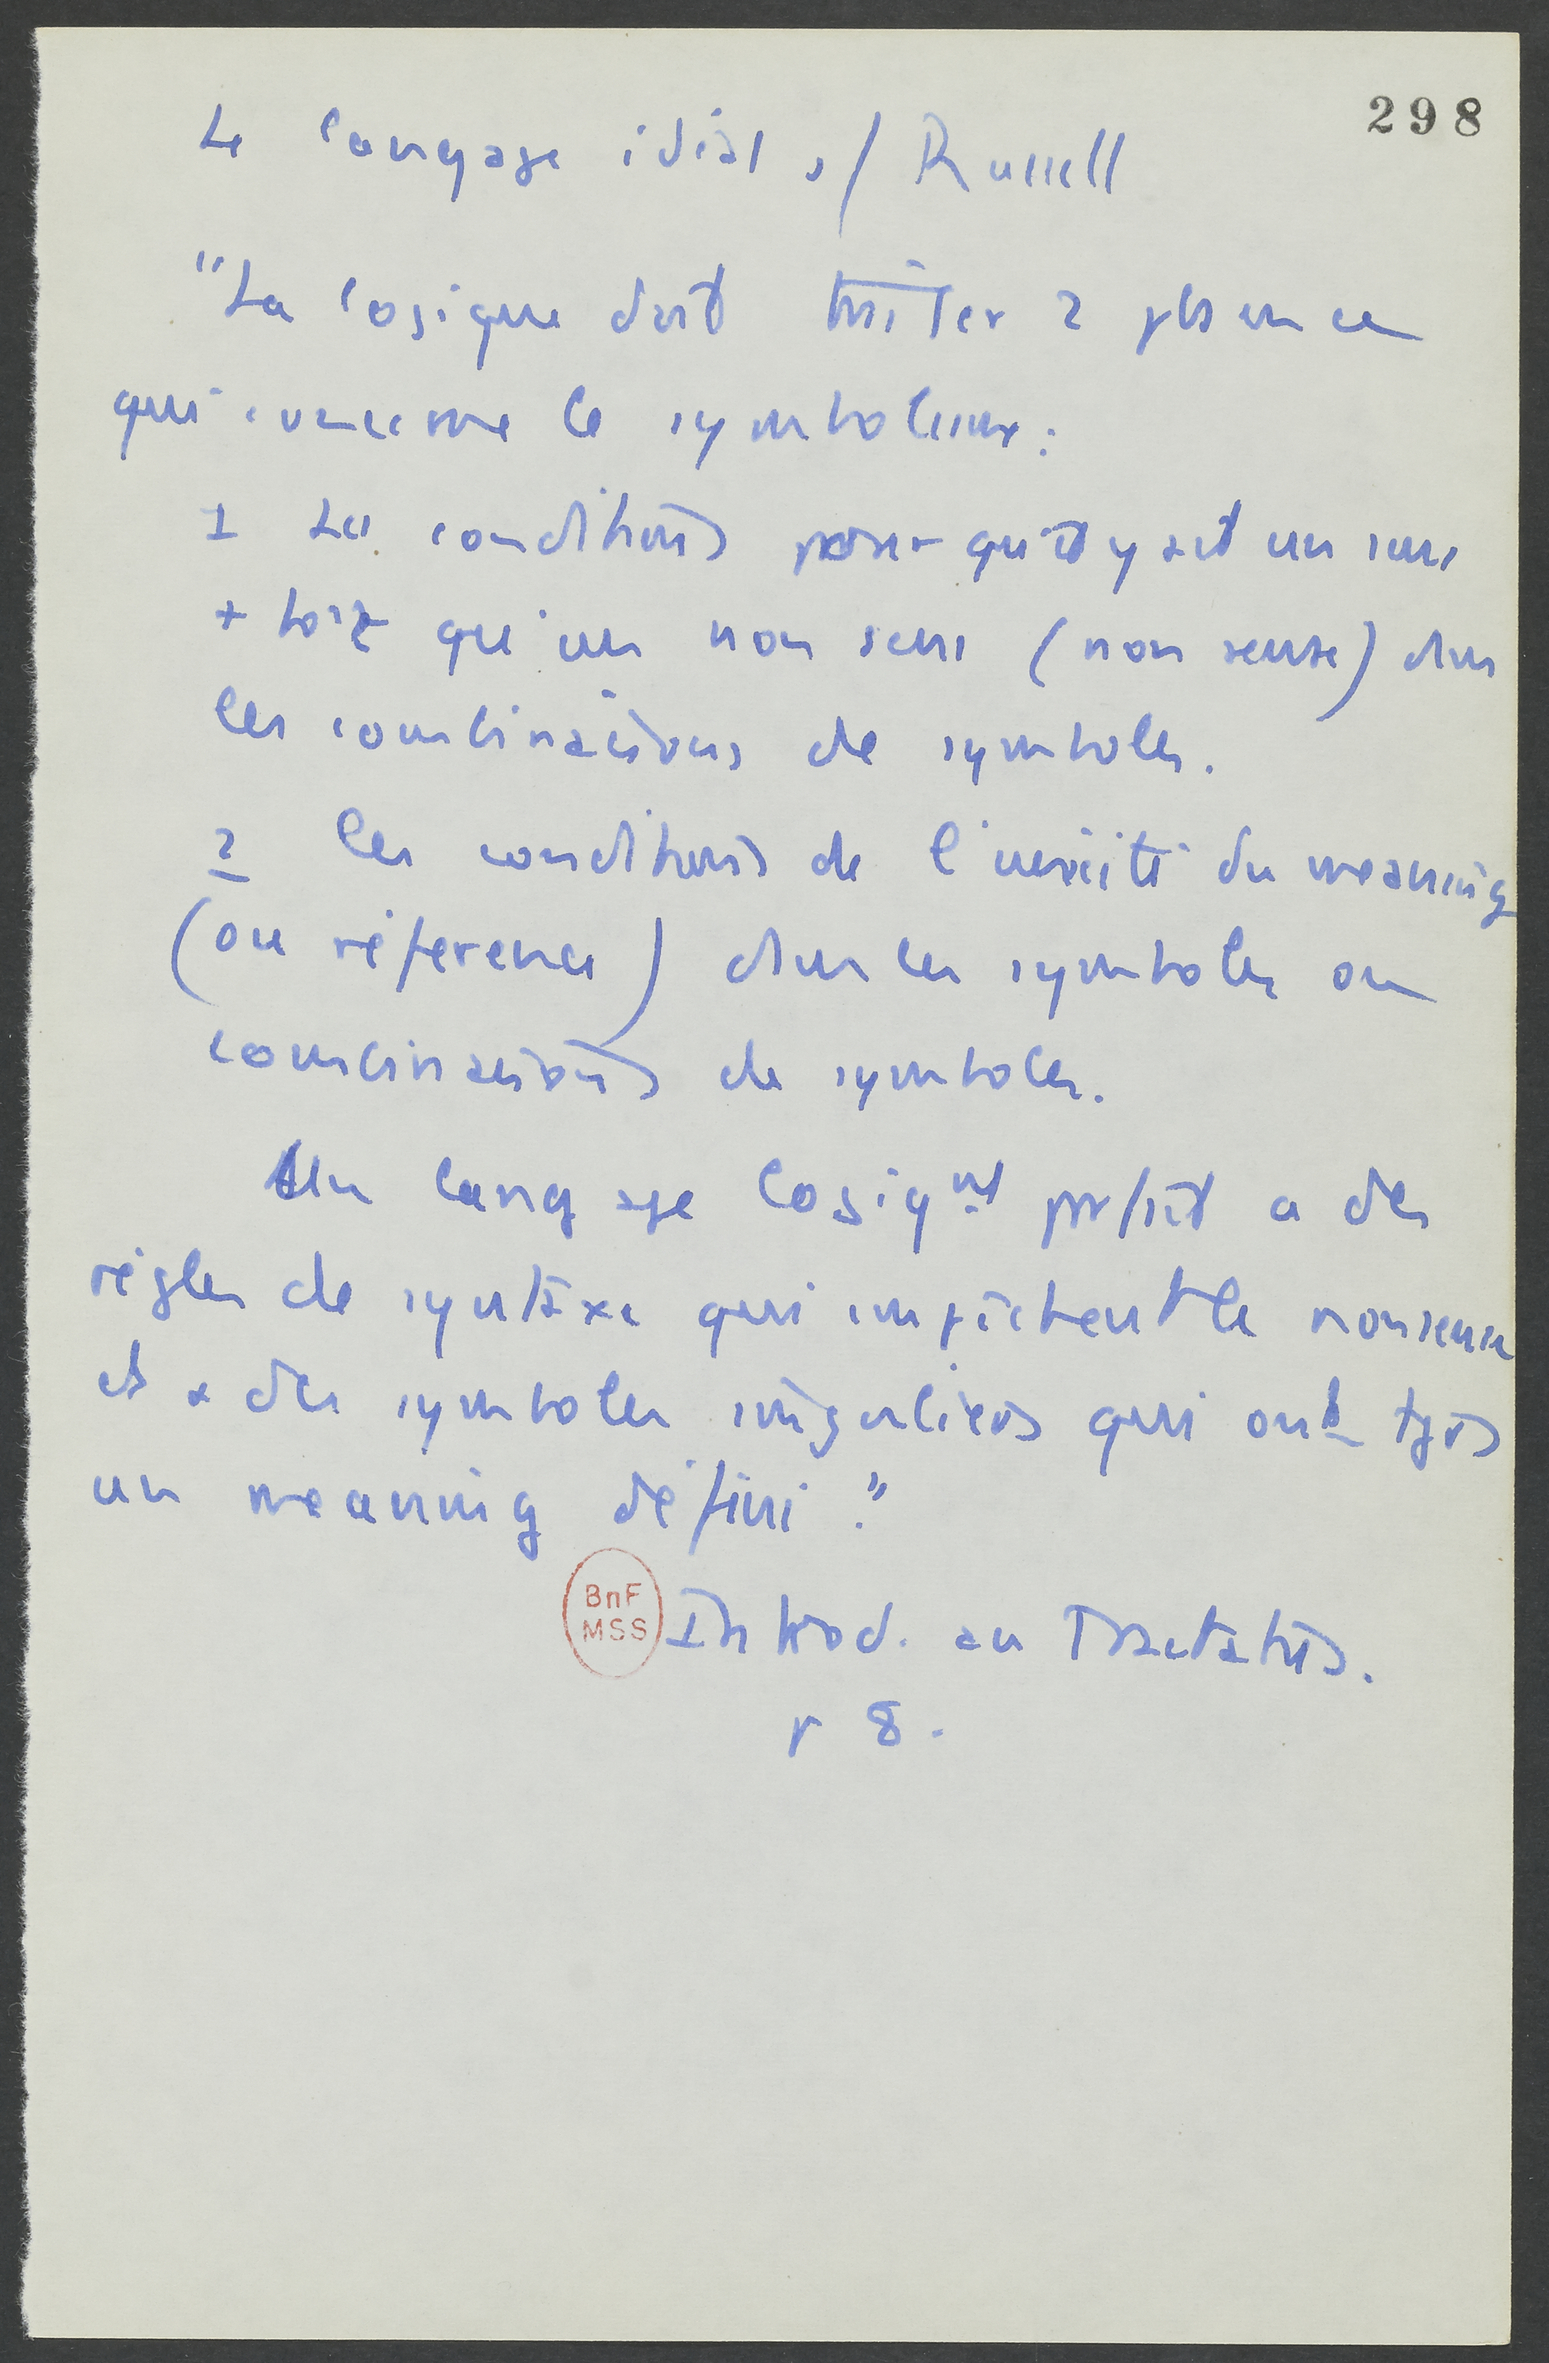 298
Le langage idéal s/ Russell
"La logique doit traiter 2 phen en ce
qui concerne le symbolisme :
1 Les conditions pour qu'il y ait un sens
+ tôt qu'un non sens (non sense) dans
les combinaisons de symboles.
2 les conditions de l'unicité du meaning
(ou référence) dans les symboles ou
combinaisons de symboles.
Un langage logiqut parfait a des
règles de syntaxe qui empêchent le nonsense
et a des symboles singuliers qui ont tjrs
un meaning défini."
BnF
MSS
Introd. au Tractatus.
p 8.